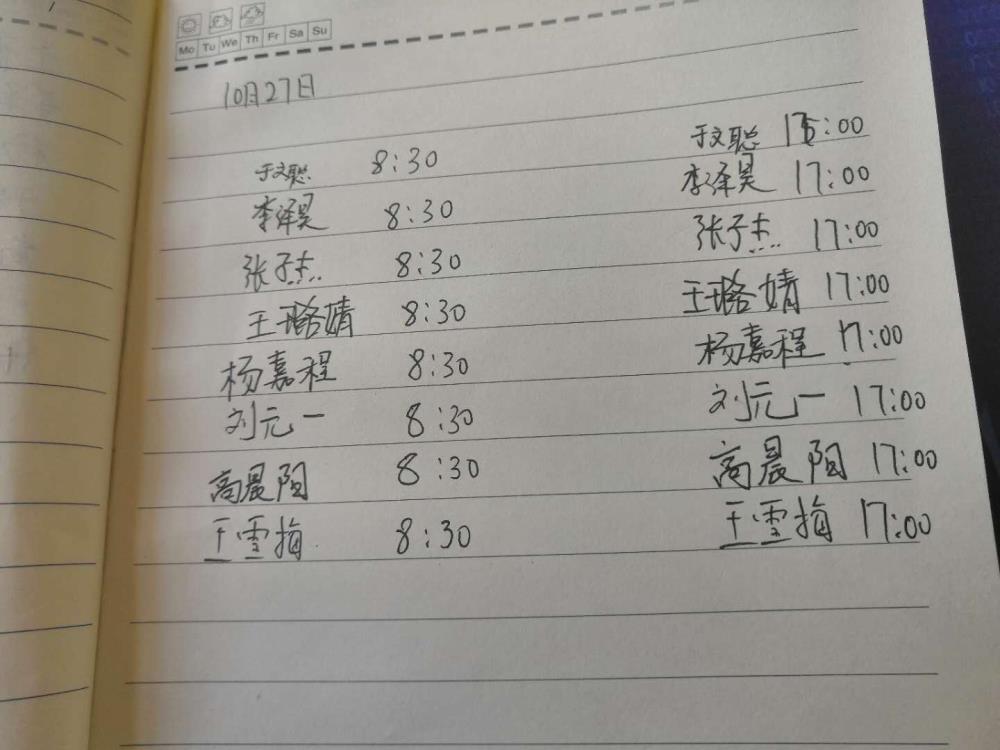 Mo Tu We Th Fr Sa Su
10月27日
于文聪 8:30 于文聪 17:00
李泽昊 8:30 李泽昊 17:00
张子杰 8:30 张子杰 17:00
王璐婧 8:30 王璐婧 17:00
杨嘉程 8:30 杨嘉程 17:00
刘元一 8:30 刘元一 17:00
高晨阳 8:30 高晨阳 17:00
王雪梅 8:30 王雪梅 17:00